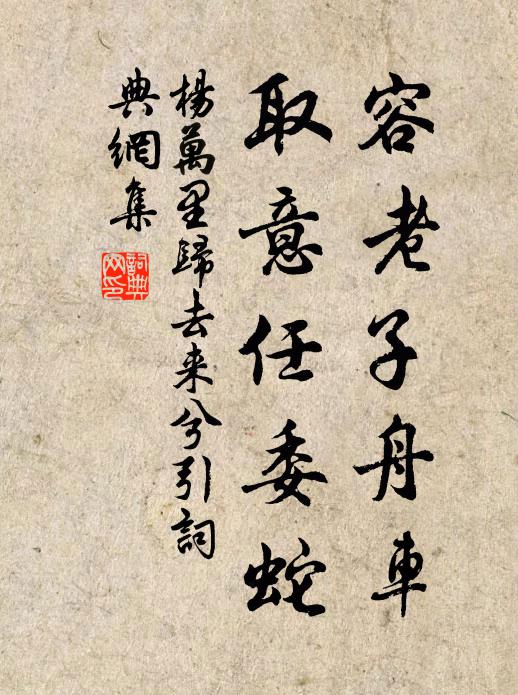 容老子舟車
取意任委蛇
楊萬里歸去来兮引詞
典網集
詞典
网印